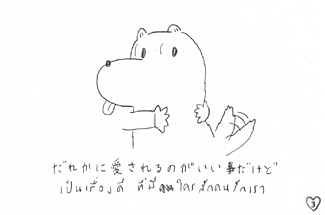 だれかに愛されるのがいい事だけど
เป็นเรื่องดี ที่มีใครสักคนรักเรา
3